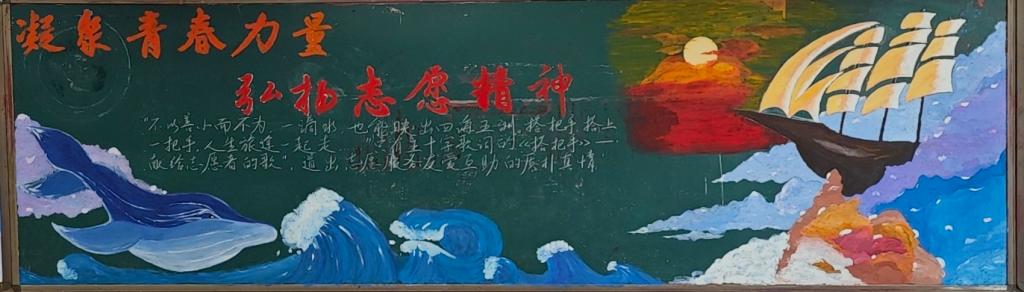 凝泉青春力量
弘扬志愿精神
"不以善小而不为 一滴水 也能映出四海五洲,搭把手 搭上
一把手,人生旅途一起走 五十字歌词的《搭把手》一
献给志愿者的歌",道出志愿服务友爱互助的质朴真情